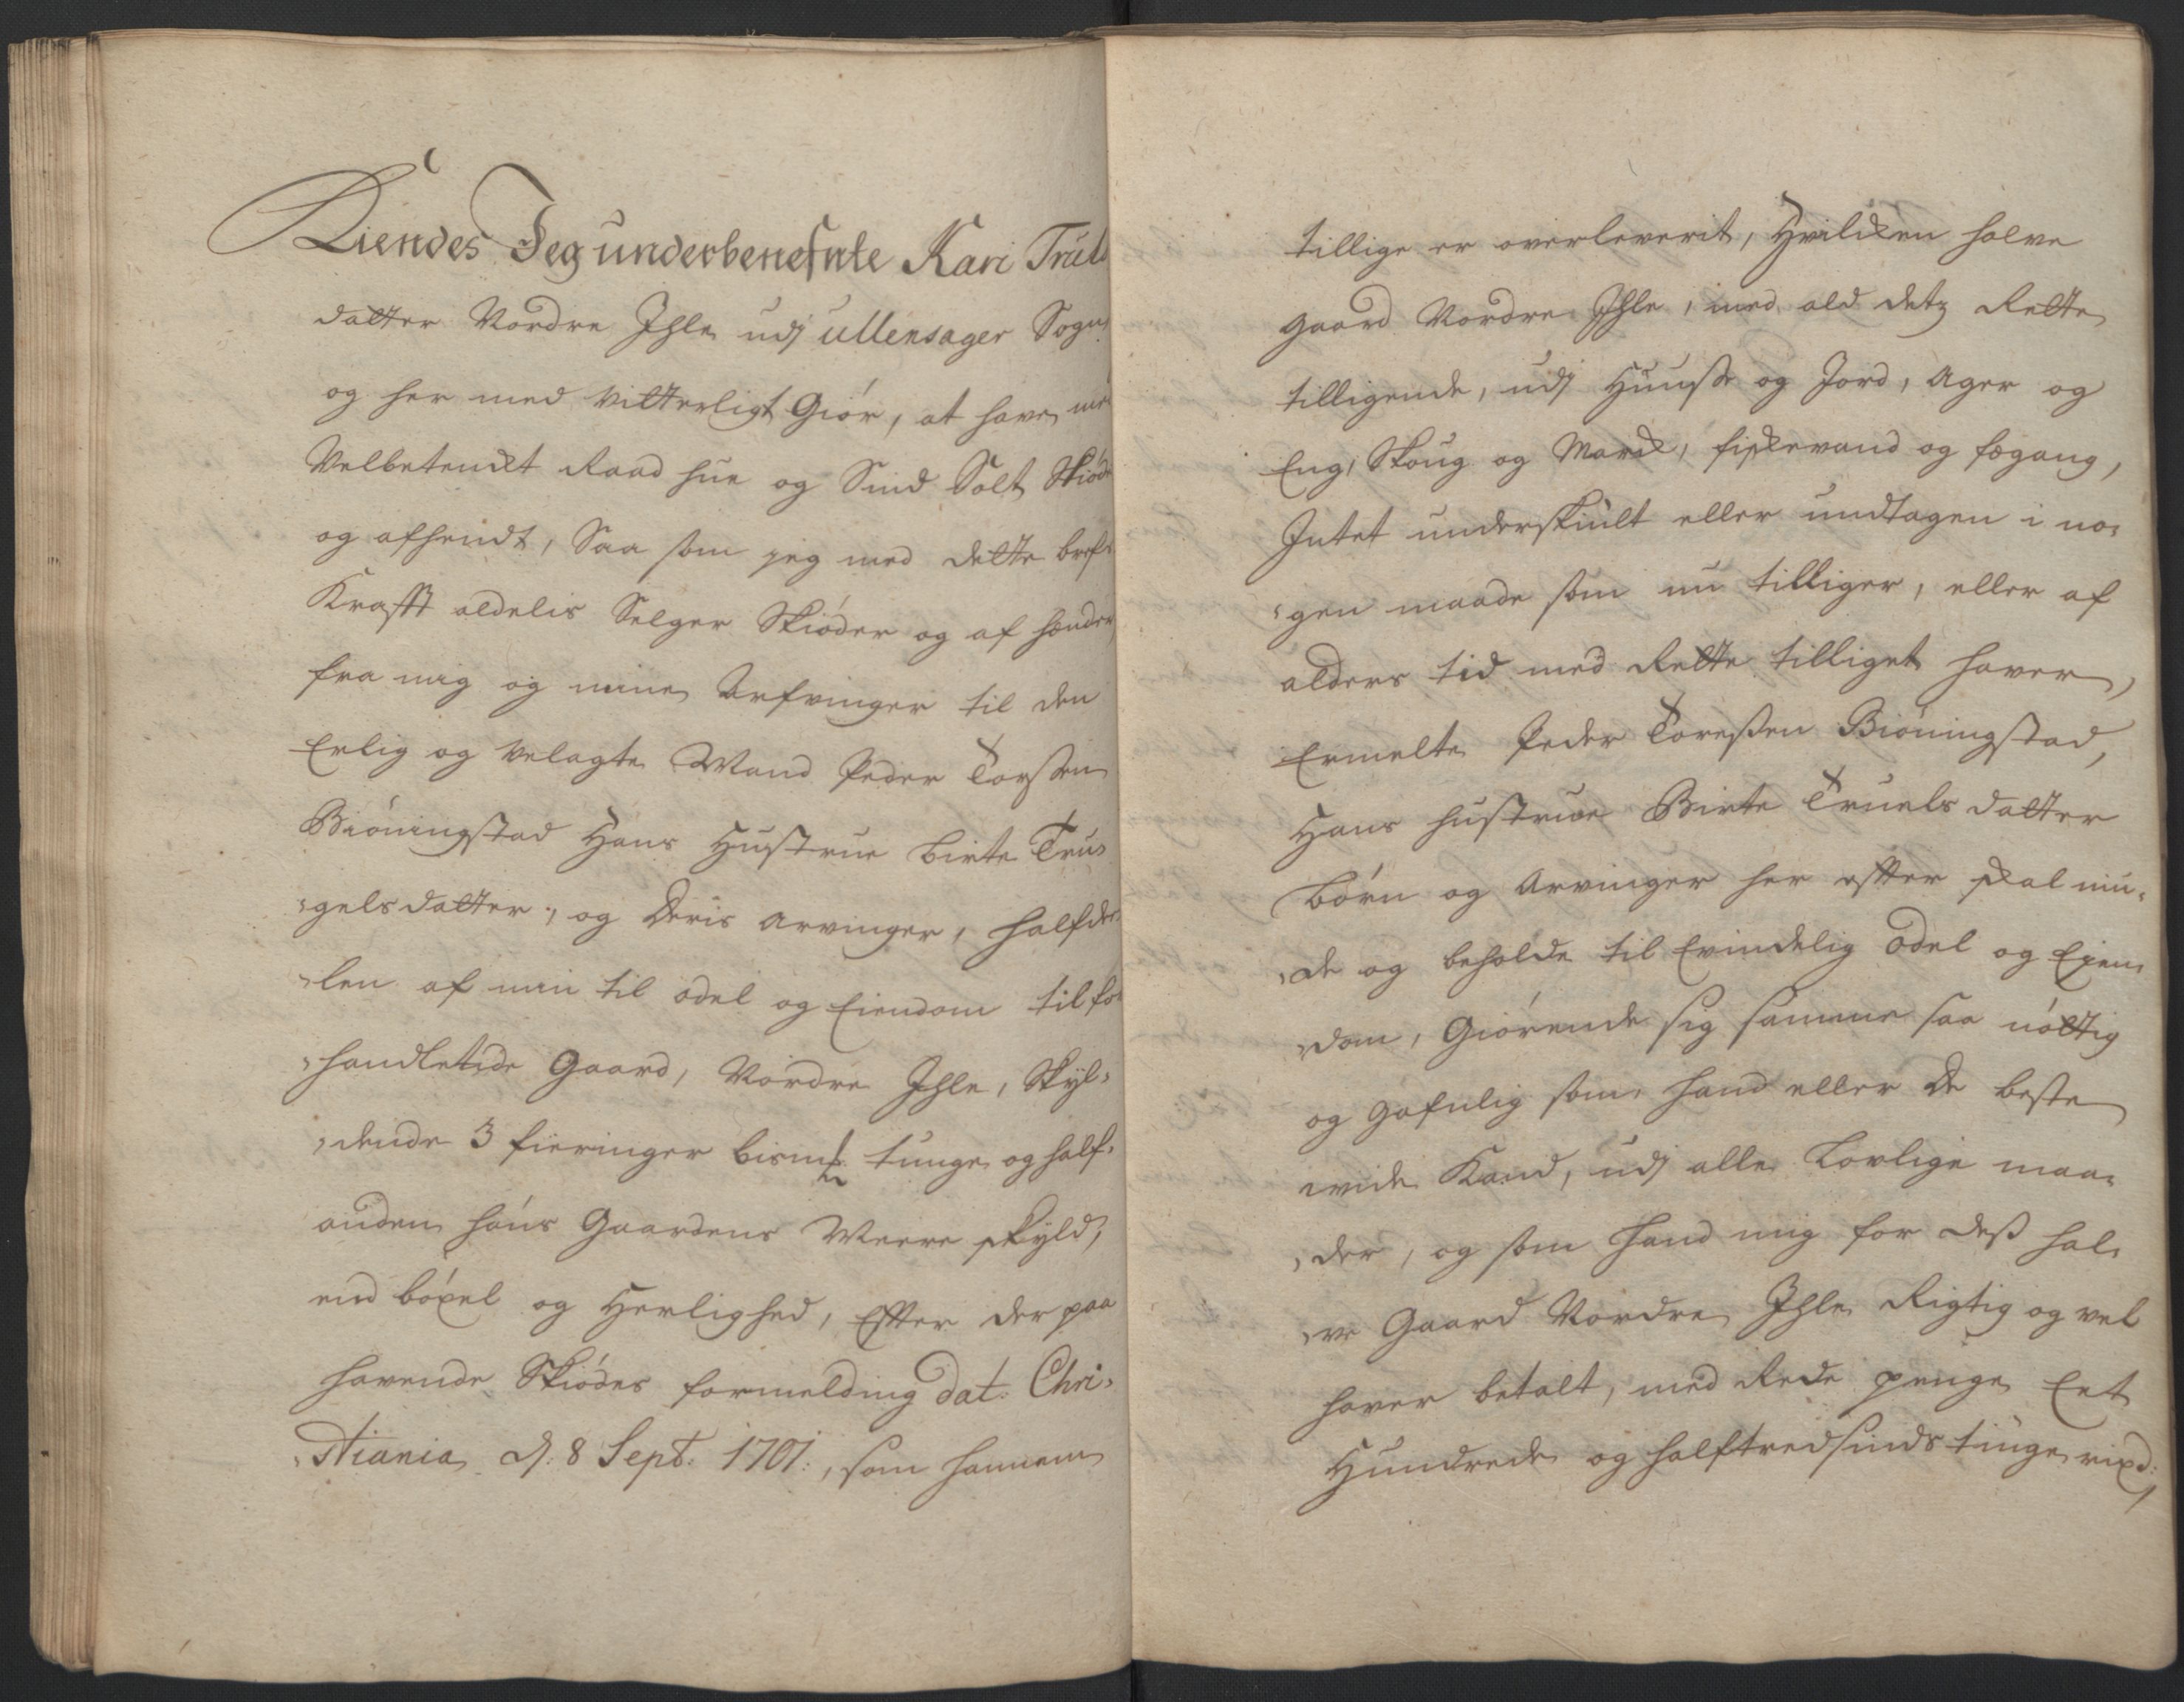 Kiendes Jeg underbenefnte Kari Truls
datter Nordre Ihle udj ullensager Sogn,
og her med vitterligt Giør, at have med
Velbetenckt Raad hue og Sind Solt Skiødt
og afhendt, Saa som jeg med dette brefs
Krafft aldelis Selger Skiøder og af hænder
fra mig og mine Arfvinger til den
Erlig og velagte Mand Peder Torßen
Biøningstad Hans Hustrue birte Tru-
-gels datter, og Deris arvinger, halfde-
-len af min til odel og Eiendom tilfor
-handlede Gaard, Nordre Ihle, Skyl-
-dende 3 fieringer bismr tunge og half-
anden høns Gaardens Meere skyld,
med bøxel og Herlighed, Efter der paa
havende Skiødes formelding dat: Chri-
-stiania d: 8 Sept: 1701:, som hannem
tillige er overleverit, Hvilcken halve
gaard Nordre Ihle, med ald detz Rette
tilligende, udj Huuße og Jord, Ager og
Eng, Skoug og Marck, fiskevand og fægang,
Intet underskiult eller undtagen i no-
-gen maade som nu tilliger, eller af
alders tid med Rette tilliget haver,
Ermelte Peder Toreßen Biøningstad,
Hans hustrue Birte Truels datter
Børn og Arvinger her efter skal niu-
-de og beholde til Evindelig odel og Eien-
-dom, Giørende sig samme saa nøttig
og gafnlig som hand eller de beste
vide Kand, udj alle Lovlige maa-
-der, og som hand mig for deß hal-
-ve Gaard Nordre Ihle Rigtig og vel
haver betalt, med Rede penge Eet
Hundrede og halftredsinds tiuge rixd:,